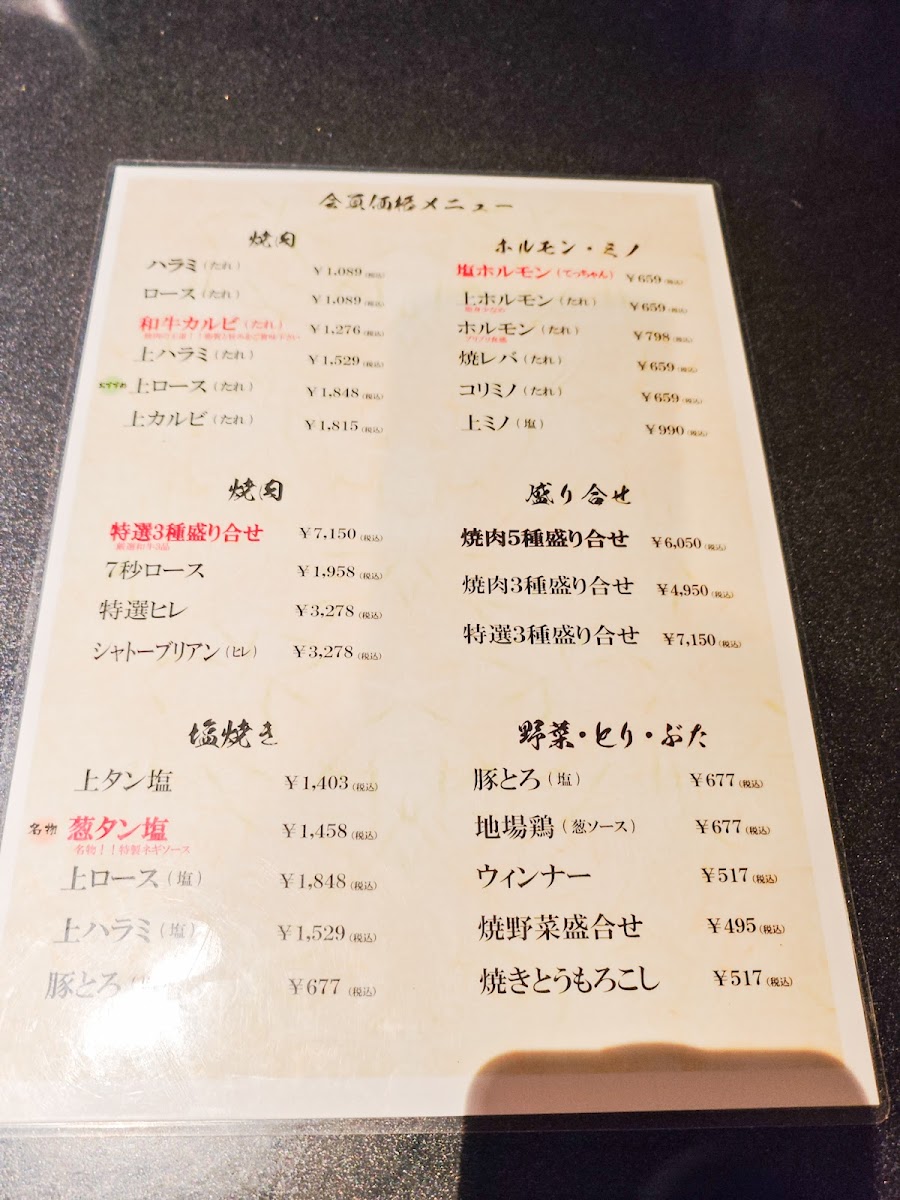 会員価格メニュー
焼肉
ハラミ（たれ） ￥1,089（税込）
ロース（たれ） ￥1,089（税込）
和牛カルビ（たれ） ￥1,276（税込）
上ハラミ（たれ） ￥1,529（税込）
おすすめ 上ロース（たれ） ￥1,848（税込）
上カルビ（たれ） ￥1,815（税込）
焼肉
特選3種盛り合せ ￥7,150（税込）
厳選和牛3品
7秒ロース ￥1,958（税込）
特選ヒレ ￥3,278（税込）
シャトーブリアン（ヒレ） ￥3,278（税込）
塩焼き
上タン塩 ￥1,403（税込）
名物 葱タン塩 ￥1,458（税込）
名物！！特製ネギソース
上ロース（塩） ￥1,848（税込）
上ハラミ（塩） ￥1,529（税込）
豚とろ ￥677（税込）
ホルモン・ミノ
塩ホルモン（てっちゃん） ￥659（税込）
上ホルモン（たれ） ￥659（税込）
ホルモン（たれ） ￥798（税込）
プリプリ食感
焼レバ（たれ） ￥659（税込）
コリミノ（たれ） ￥659（税込）
上ミノ（塩） ￥990（税込）
盛り合せ
焼肉5種盛り合せ ￥6,050（税込）
焼肉3種盛り合せ ￥4,950（税込）
特選3種盛り合せ ￥7,150（税込）
野菜・とり・ぶた
豚とろ（塩） ￥677（税込）
地場鶏（葱ソース） ￥677（税込）
ウィンナー ￥517（税込）
焼野菜盛合せ ￥495（税込）
焼きとうもろこし ￥517（税込）